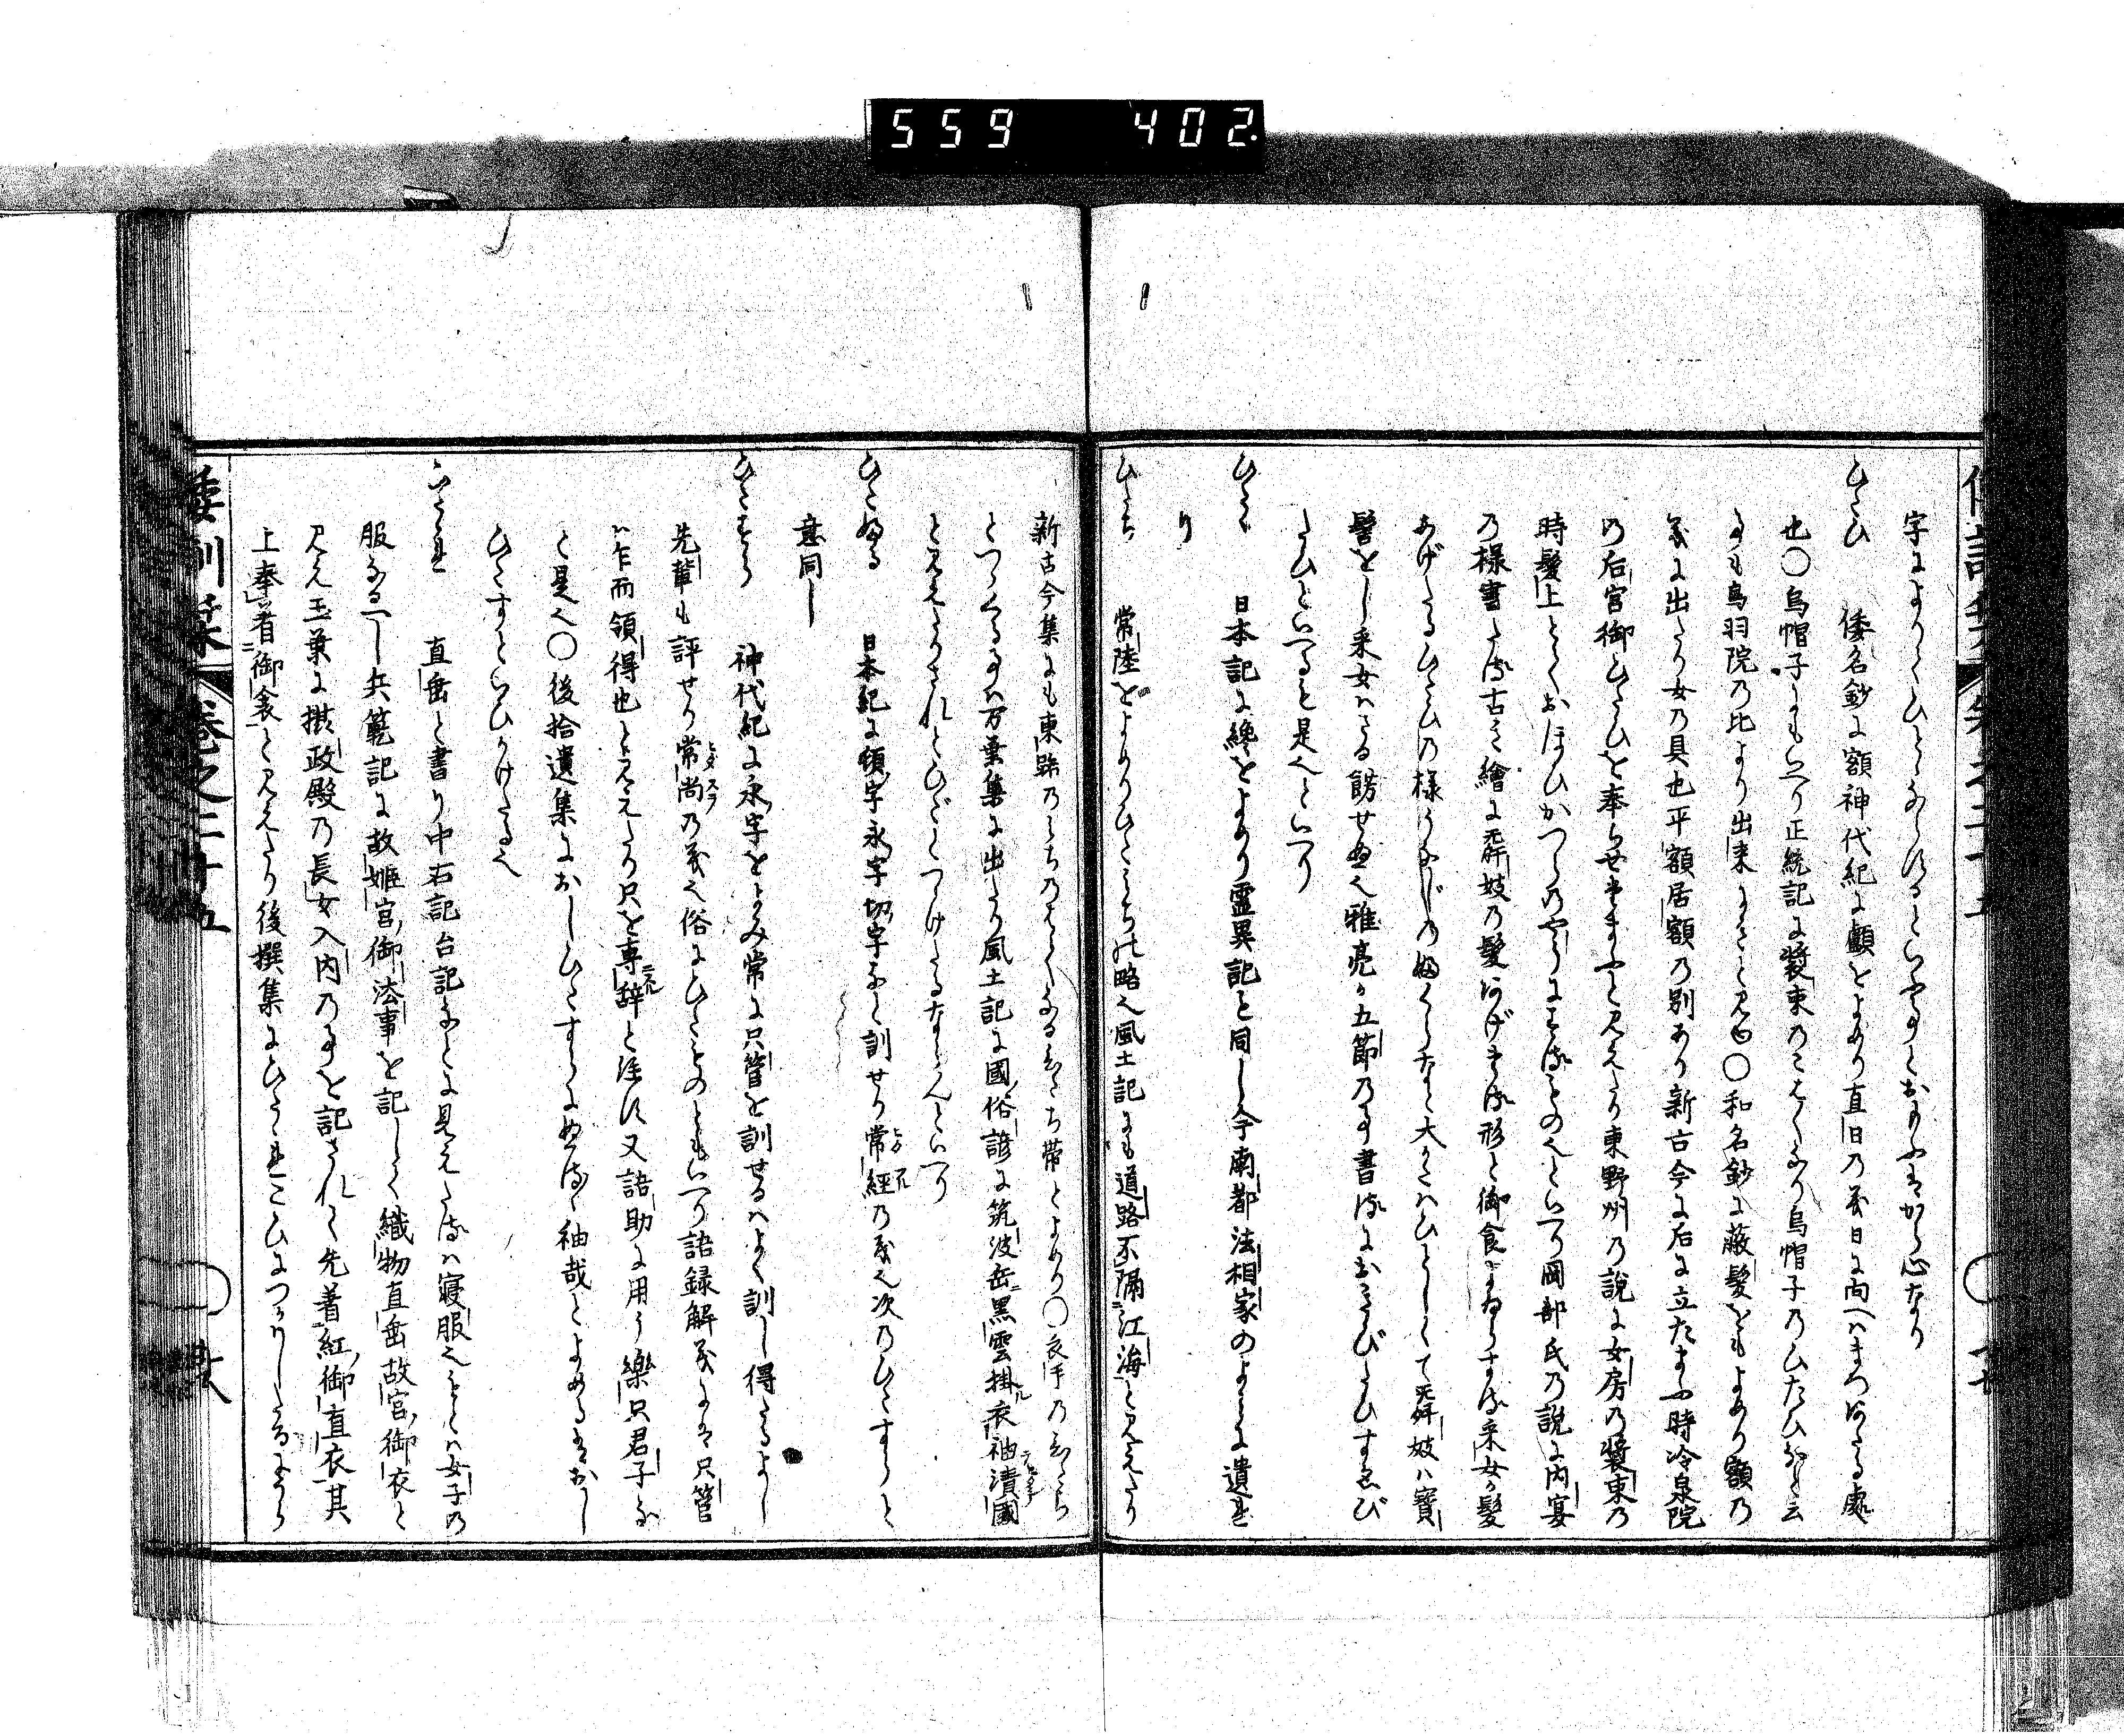 559 402
字によりてひたふるといふ事とおもふはわろ心なり
ひたひ 倭名鈔に額神代紀に顱をよめり直日の義日に向へはまつあたる處
也〇烏帽子にもいへり正統記に装束のこはくなり烏帽子のひたひなと云
事も鳥羽院の比より出来にきと見ゆ〇和名鈔に蔽髪をもよめり額の
義に出たり女の具也平額居額の別あり新古今に后に立たまふ時冷泉院
の后宮御ひたひを奉らせ給けると見えたり東野州の説に女房の装束の
時髪上とておほひかつらのやうにするものといへり岡部氏の説に内宴
の様書たる古き繪に舞妓の髪あげする形と御食まゐらする采女の髪
あげたるひたひの様うなじのふくらなと大かたはひとしくて舞妓は寶
髻をし采女はさる餝せぬ也雅亮か五節の事書るにおきひたひすゑひ
たひといへると是也といへり
ひたく 日本記に纔をよめり靈異記も同し今南都法相家のよみに遺れ
り
ひたち 常陸をよめりひたみちの略也風土記にも道路不隔江海と見えたり
新古今集にも東路のみちのはてなるひたち帯とよめり〇衣手のひたち
とつゝくる事は万葉集に出たり風土記に國俗諺に筑波岳黒雲掛衣袖漬國
と見えたりされとひぢとつけたるならんといへり
ひたふる 日本紀に頓字永字切字なと訓せり常經の義也次のひたすらと
意同し
ひたすら 神代紀に永字をよみ常に只管を訓せるはよく訓し得たるよし
先輩も評せり常尚の義也俗にひたものともいへり語録解義には只管
は乍而領得也と見えたり只を専辞と注す又語助に用う樂只君子な
と是也〇後拾遺集におしひたすらにぬるゝ袖哉とよめるはおし
ひたすといひかけたる也
ひたゝれ 直垂と書り中右記台記なとに見えたるは寝服也もとは女子の
服なるへし兵範記に故姫宮御法事を記して織物直垂故宮御衣と
見え玉葉に摂政殿の長女入内の事を記されて先着紅御直衣其
上奉着御衾と見えたり後撰集にひたゝれこひにつかはしたるにうら
倭訓栞 巻之二十五